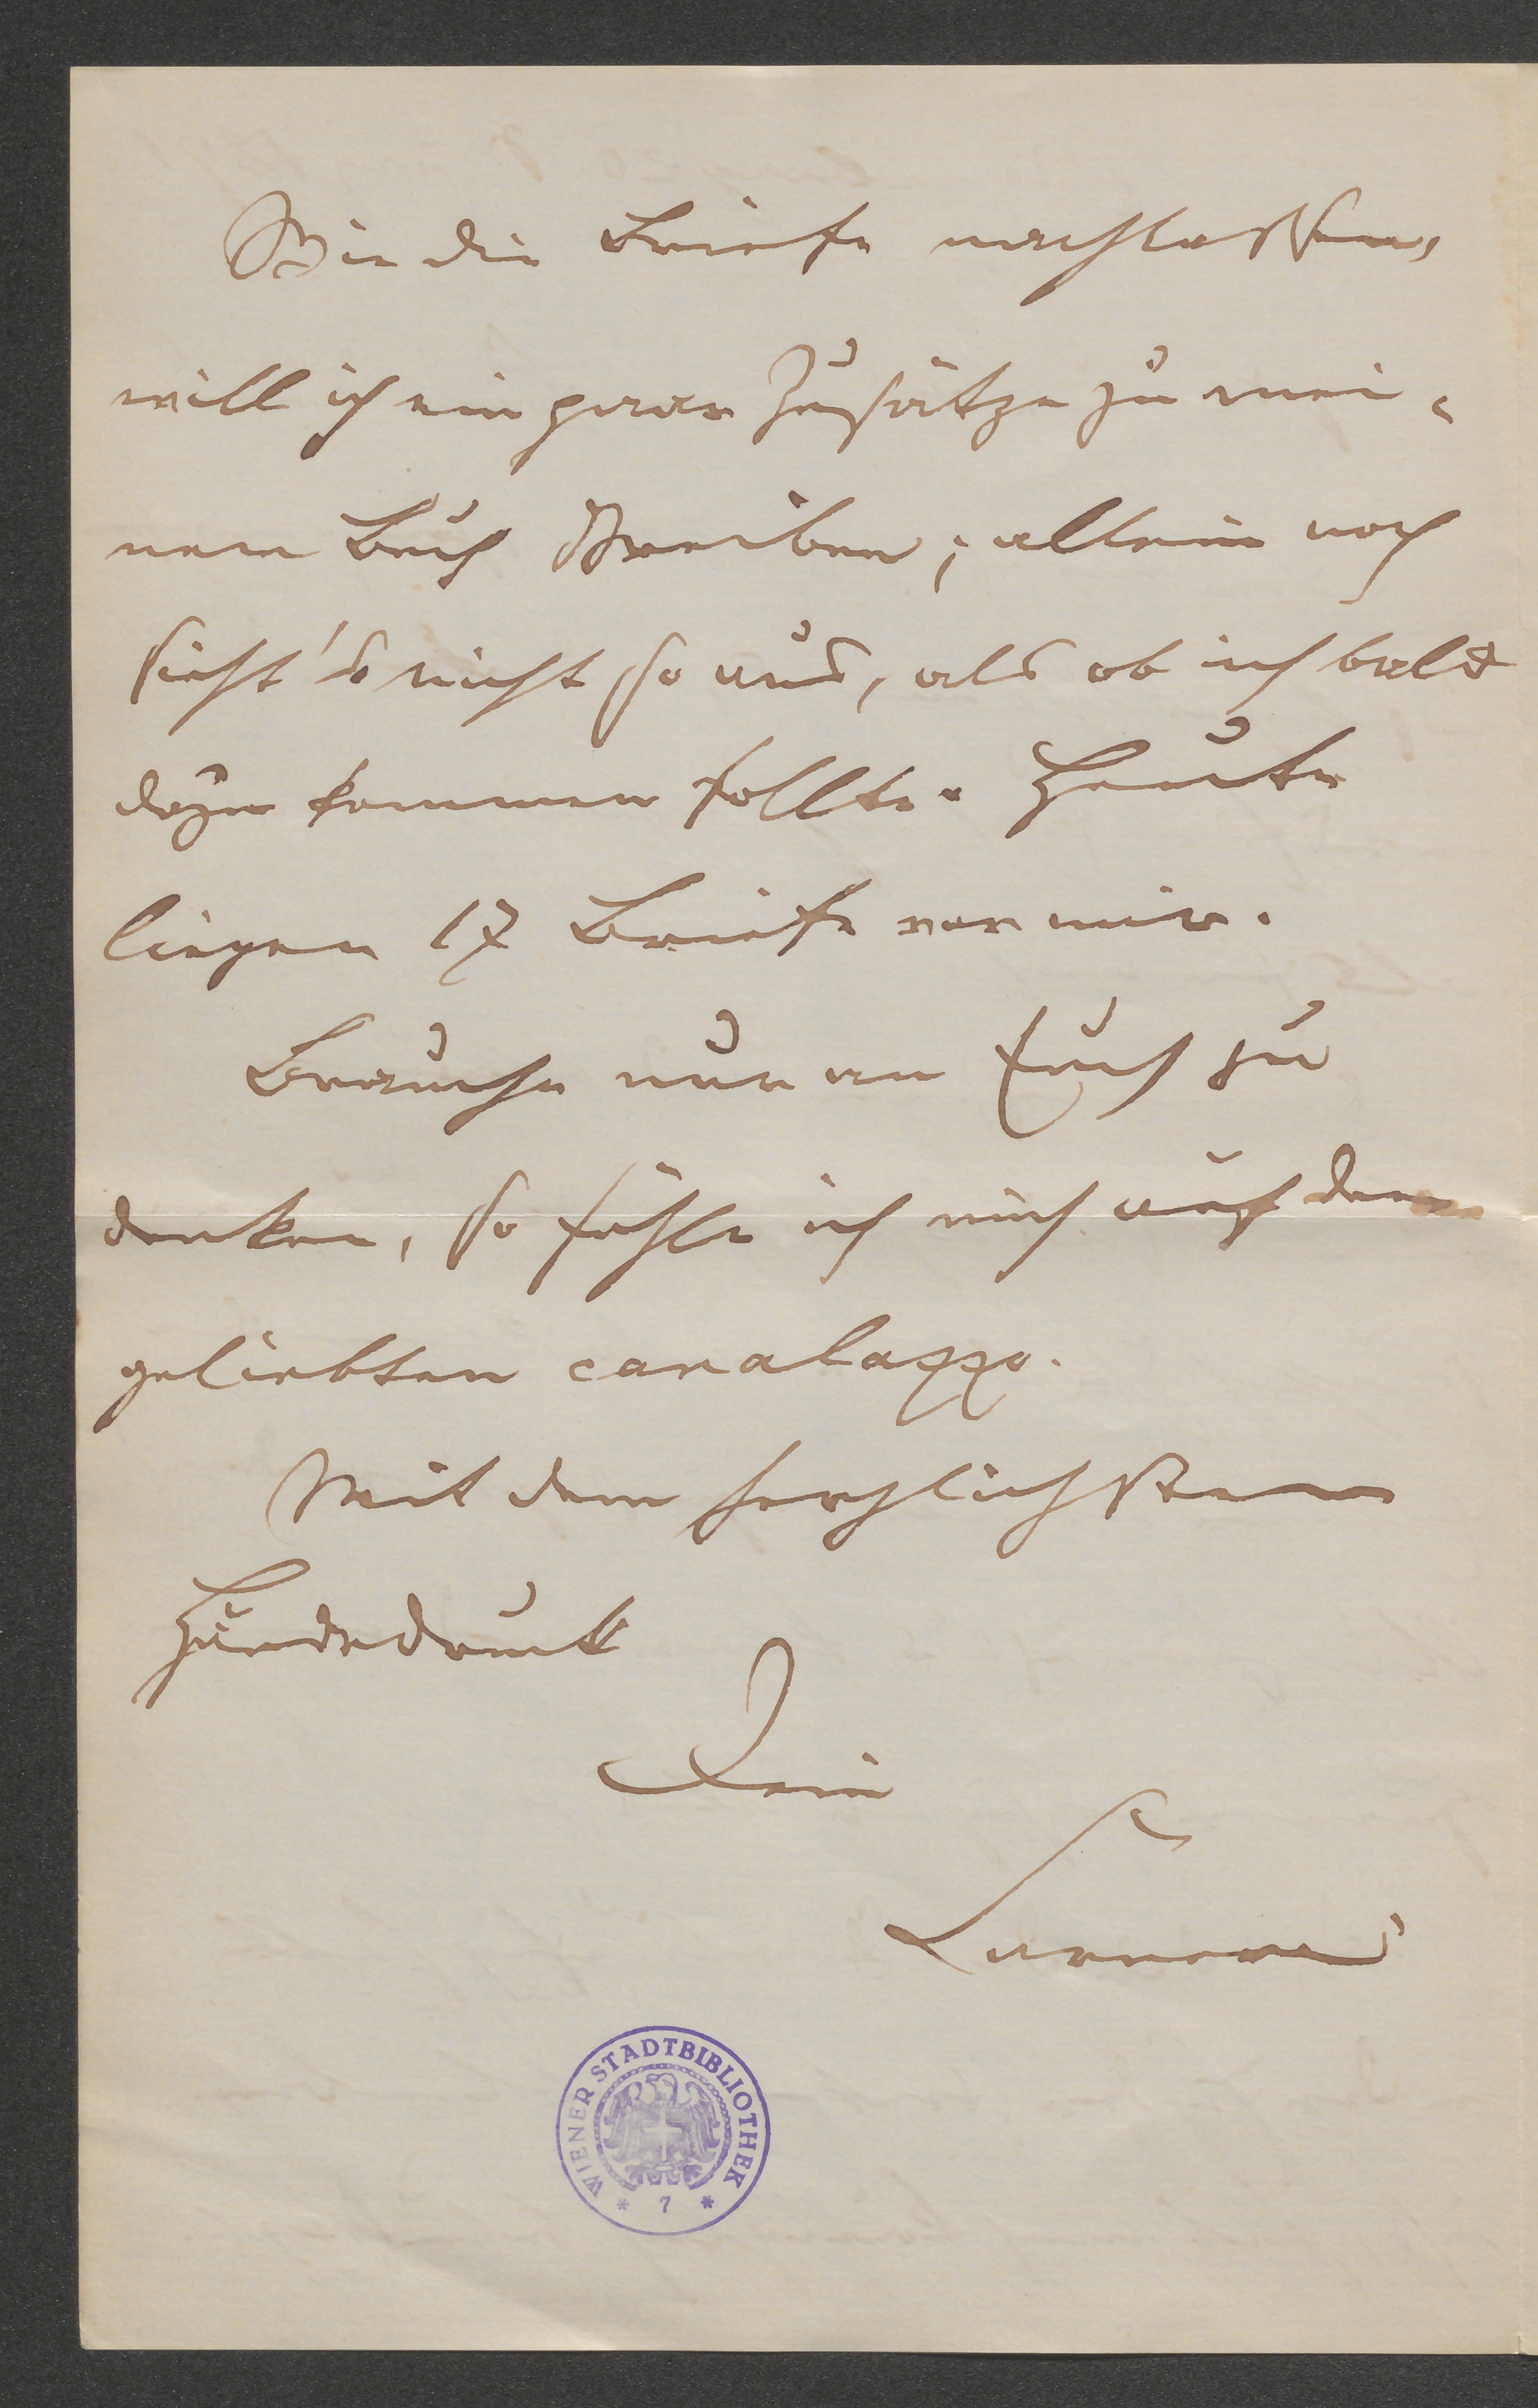 Wie die Briefe nachlassen,
will ich ein paar Zusätze zu mei-
nem Buch schreiben; allein noch
sieht's nicht so aus, als ob ich bald
dazu kommen sollte. Heute
liegen 17 Briefe vor mir.
Brauche nur an Euch zu
denken, so fühle ich mich auf dem
geliebten canalazzo.
Mit dem herzlichsten
Händedruck
Dein
Carneri
WIENER STADTBIBLIOTHEK
* 7 *